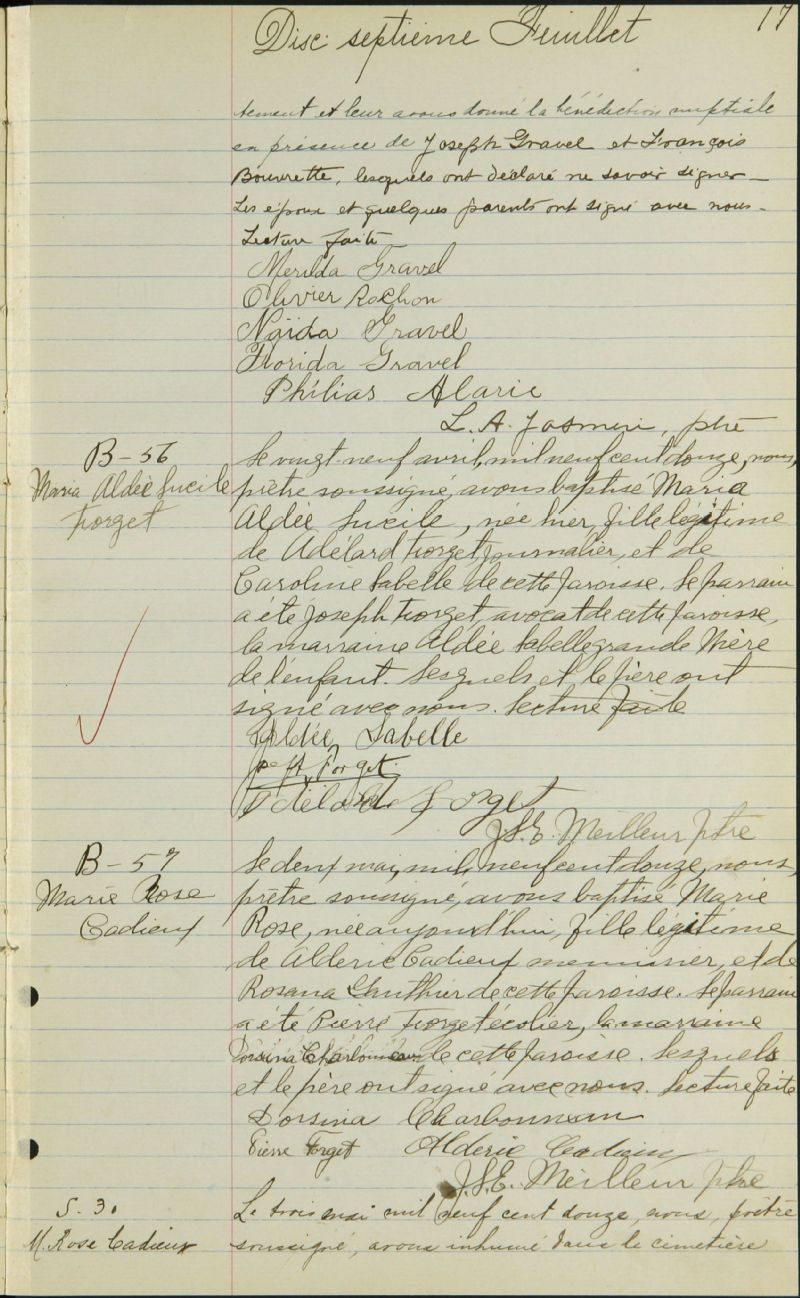 17
Disc septième Feuillet
tement et leur avons donné la bénédiction nuptiale
en présence de Joseph Gravel et François
Bouvrette, lesquels ont déclaré ne savoir signer_
Les époux et quelques parents ont signé avec nous.
Lecture faite
Merilda Gravel
Olivier Rochon
Naïda Gravel
Florida Gravel
Philias Alarie
L. A. Jasmin, ptre
B-56
Maria Aldée Lucile
Forget
Le vingt-neuf avril, mil neuf cent douze, nous,
prêtre soussigné, avons baptisé Maria
Aldée Lucile, née hier, fille légitime
de Adélard Forget, journalier, et de
Caroline Labelle de cette paroisse. Le parrain
a été Joseph Forget, avocat de cette paroisse,
la marraine Aldée Labelle grande Mère
de l'enfant. Lesquels et le père ont
signé avec nous. Lecture faite
Aldée Labelle
Forget
Adélard Forget
J.S.E. Meilleur ptre
B-57
Marie Rose
Cadieux
Le deux mai, mil neuf cent douze, nous,
prêtre soussigné, avons baptisé Marie
Rose, née aujourd'hui, fille légitime
de Alderic Cadieux menuisier, et de
Rosana Gauthier de cette paroisse. Le parrain
a été Pierre Forget écolier, la marraine
Dorsina Charbonneau de cette paroisse. Lesquels
et le père ont signé avec nous. Lecture faite
Dorsina Charbonneau
Pierre Forget Alderic Cadieux
J.S.E. Meilleur ptre
S. 30
M. Rose Cadieux
Le trois mai mil neuf cent douze, nous, prêtre
soussigné, avons inhumé dans le cimetière